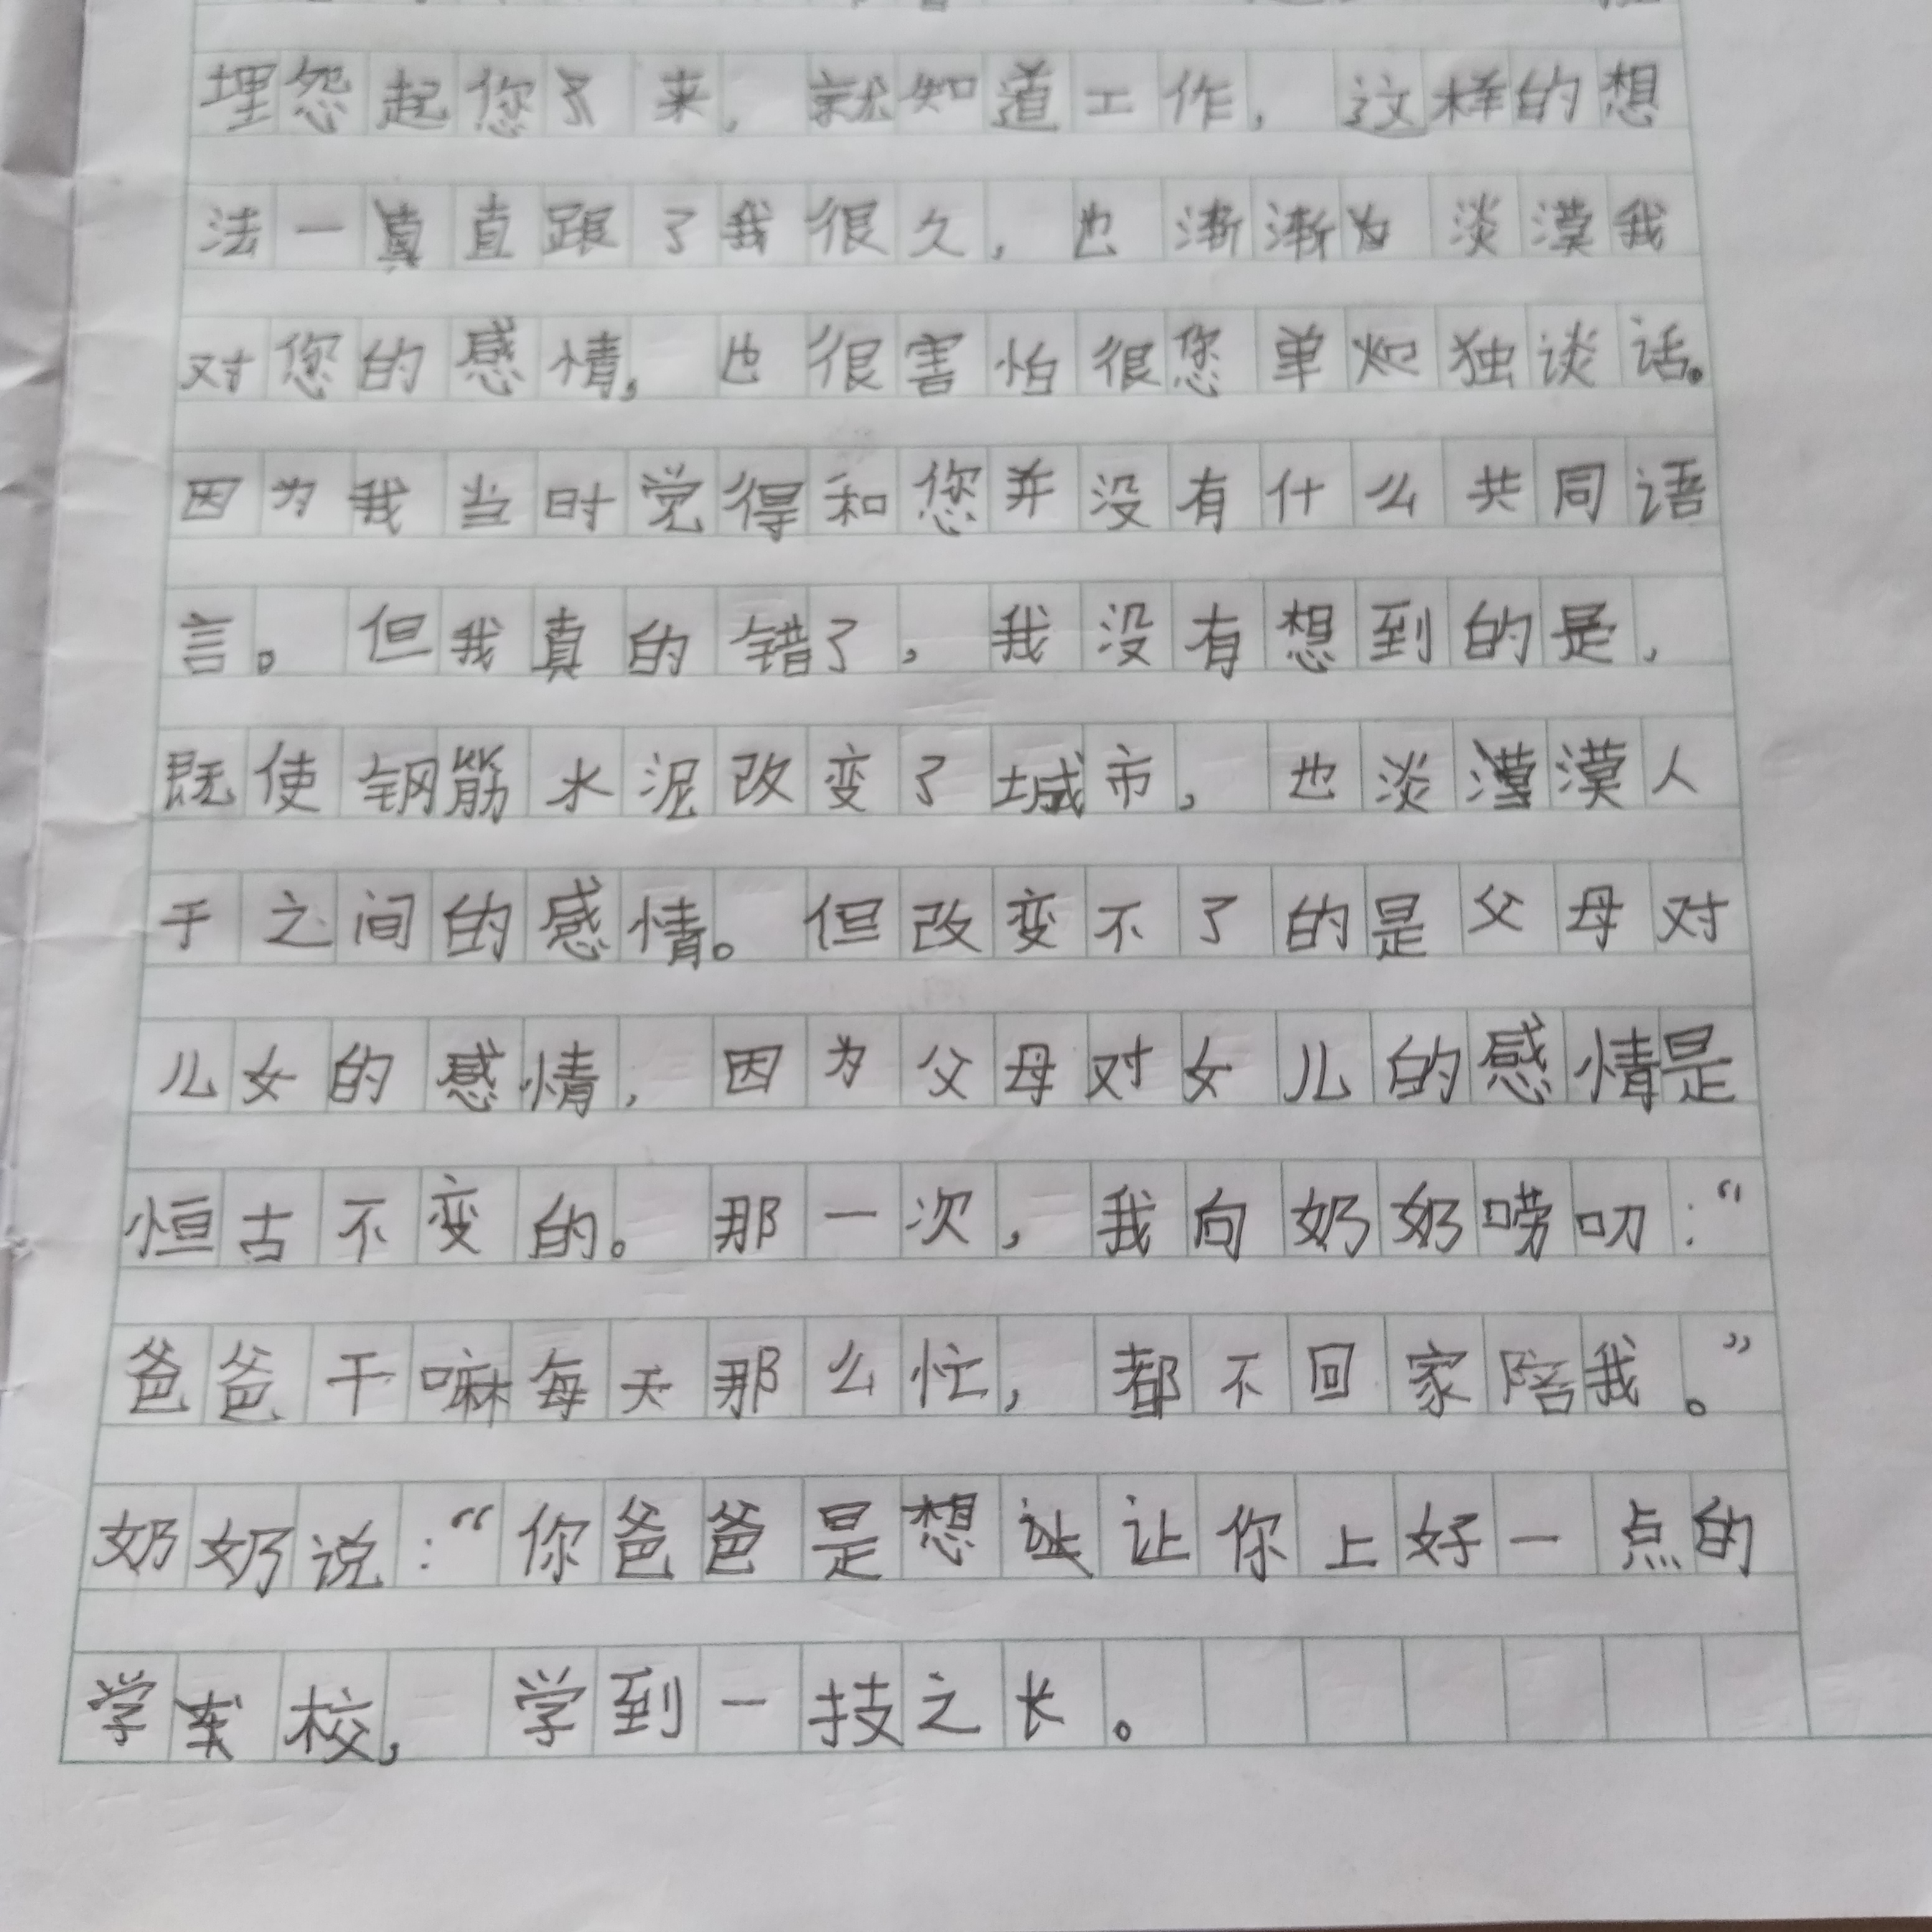 埋怨起您来，就知道工作，这样的想
法一直跟了我很久，也渐渐淡漠我
对您的感情，也很害怕很您单独谈话。
因为我当时觉得和您并没有什么共同语
言。但我真的错了，我没有想到的是，
既使钢筋水泥改变了城市，也淡漠人
于之间的感情。但改变不了的是父母对
儿女的感情，因为父母对女儿的感情是
恒古不变的。那一次，我向奶奶唠叨：“
爸爸干嘛每天那么忙，都不回家陪我。”
奶奶说：“你爸爸是想让你上好一点的
学校，学到一技之长。